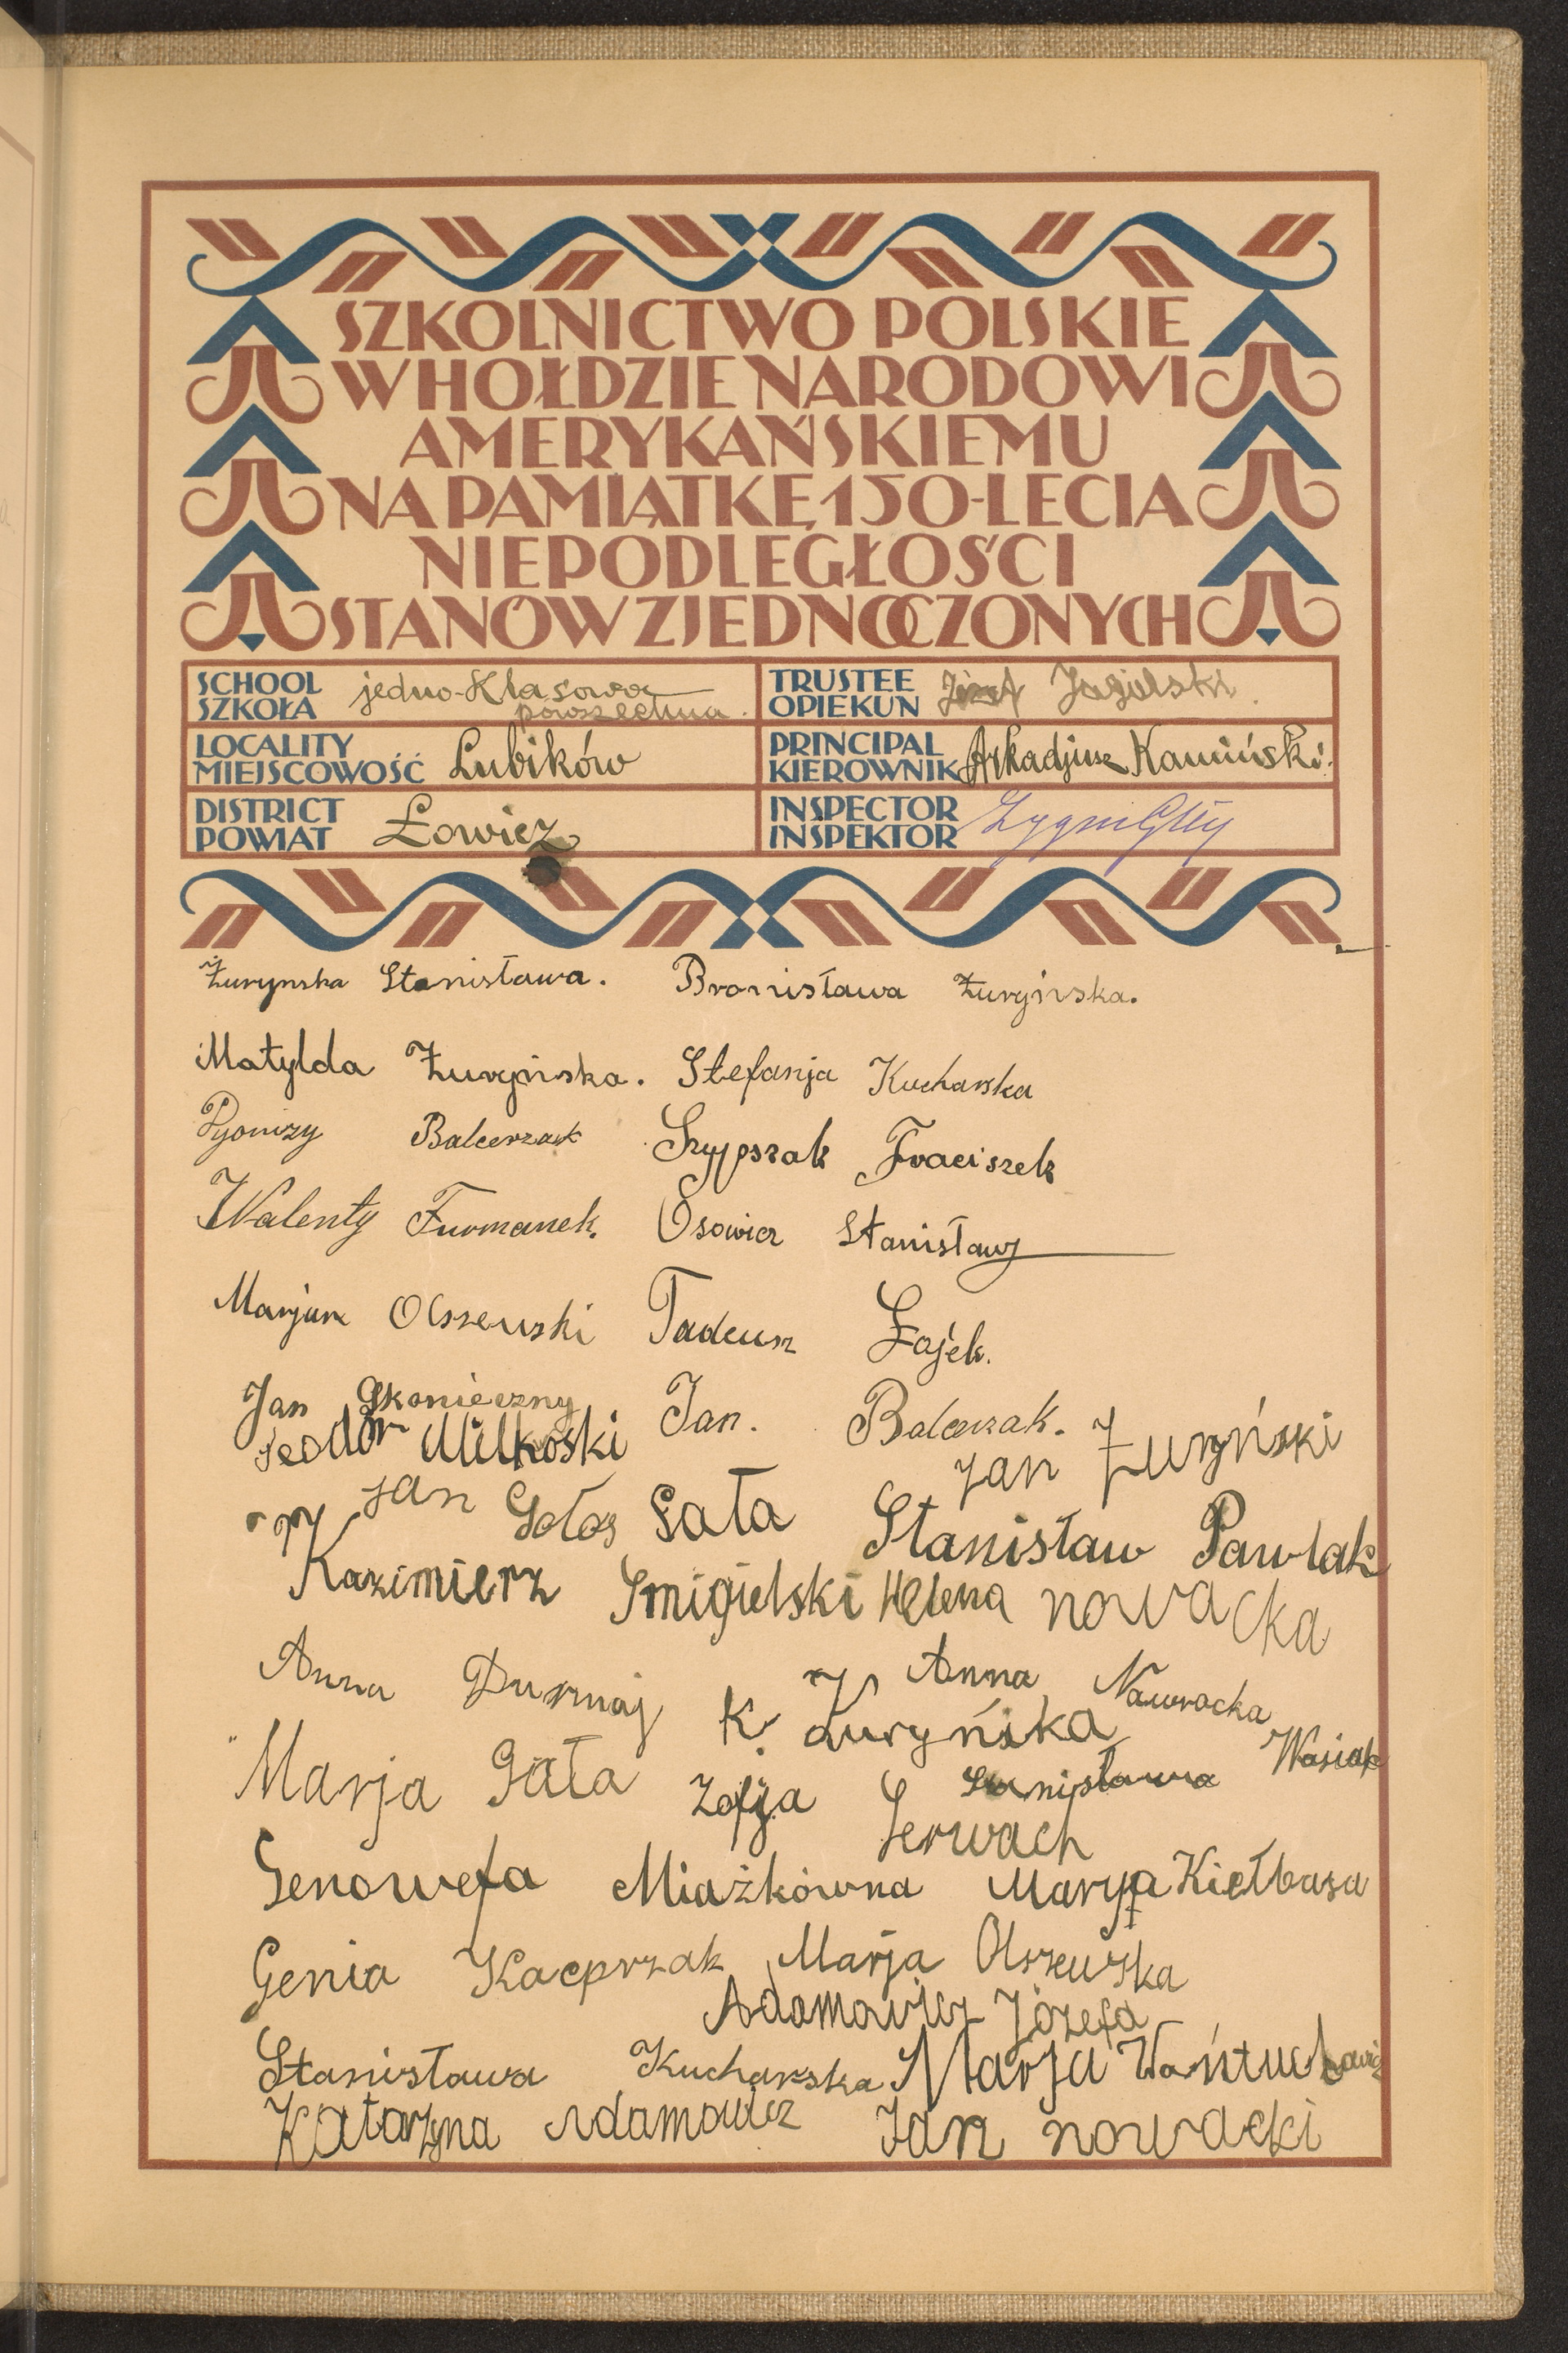 SZKOLNICTWO POLSKIE
W HOŁDZIE NARODOWI
AMERYKAŃSKIEMU
NA PAMIĄTKĘ 150-LECIA
NIEPODLEGŁOŚCI
STANÓW ZJEDNOCZONYCH
SCHOOL SZKOŁA jedno-Klasowa powszechna.
TRUSTEE OPIEKUN Józef Jagielski
LOCALITY MIEJSCOWOŚĆ Łubików
PRINCIPAL KIEROWNIK Arkadjusz Kamiński.
DISTRICT POWIAT Łowicz
INSPECTOR INSPEKTOR
Żurynska Stanisława. Bronisława Żuryńska.
Matylda Żuryńska. Stefanja Kucharska
Dyonizy Balcerzak Szypszak Fraciszek
Walenty Furmanek. Osowicz Stanisław
Marjan Olszewski Tadeusz Zajek.
Jan Skonieczny Jan. Balcerzak.
Teodor Milkoski Jan Żuryński
Jan Gołos Gała Stanisław Pawlak
Kazimierz Smigielski Helena nowacka
Anna Durmaj Anna Nawrocka
K. Żuryńska
Marja Gała Zofja Gerwach Stanisława Wasiak
Genowefa Miażkówna Maryja Kiełbasa
Genia Kacprzak Marja Olszewska
Adamowicz Józefa
Stanisława Kucharska Marja Wańtuchowicz
Katarzyna Adamowicz Jan nowacki